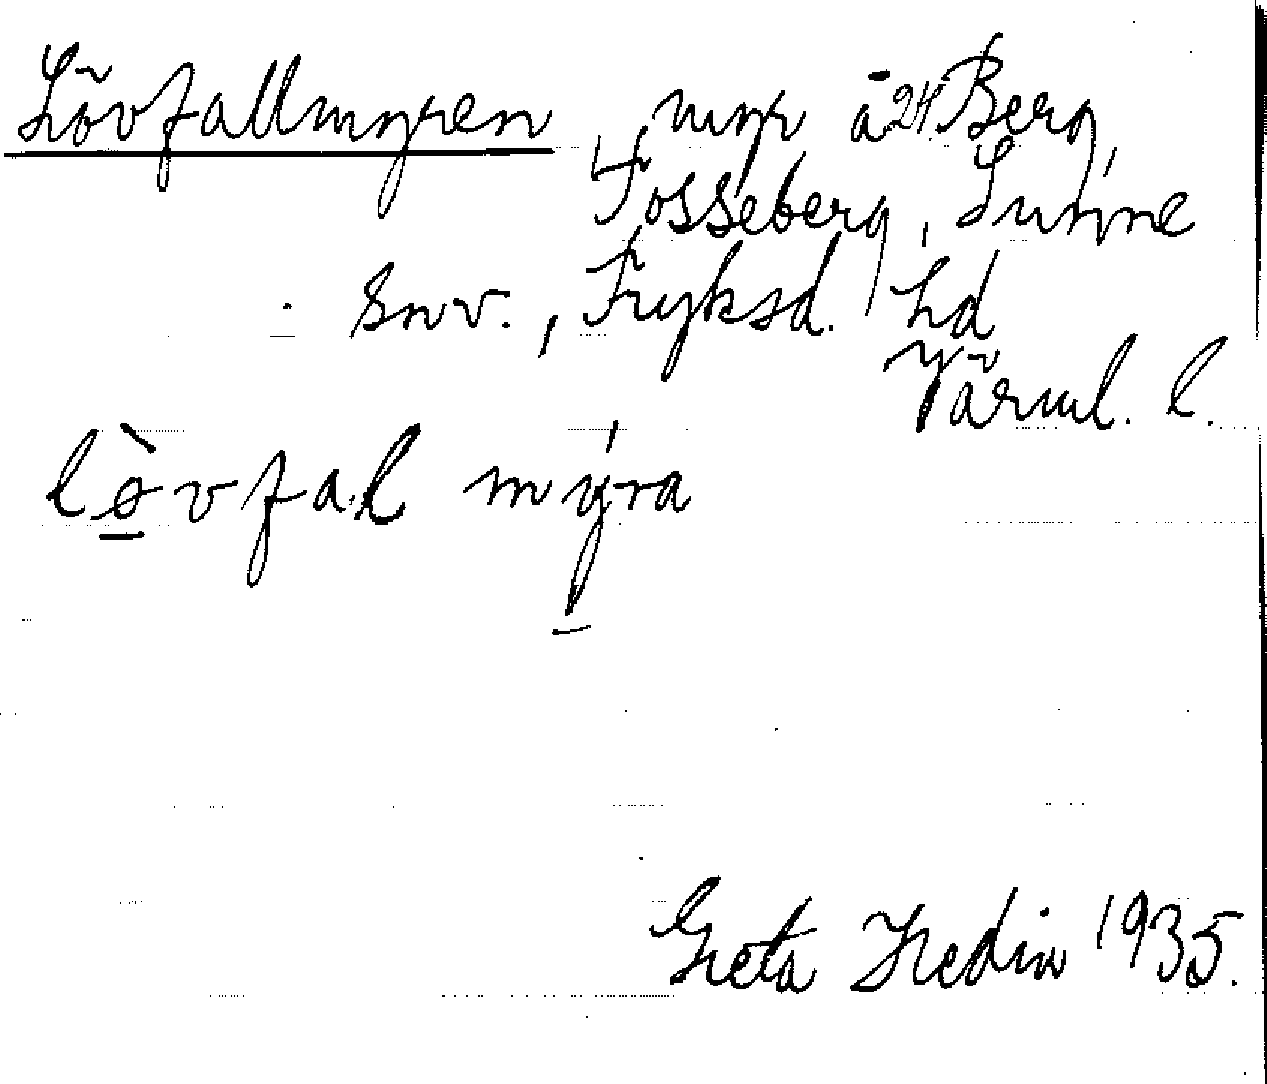 Lövfallmyren, myr å 24 Berg,
Fosseberg, Sunne
snv., Fryksd. hd
Värml. l.
lòvfal mýra
Greta Hedin 1935.